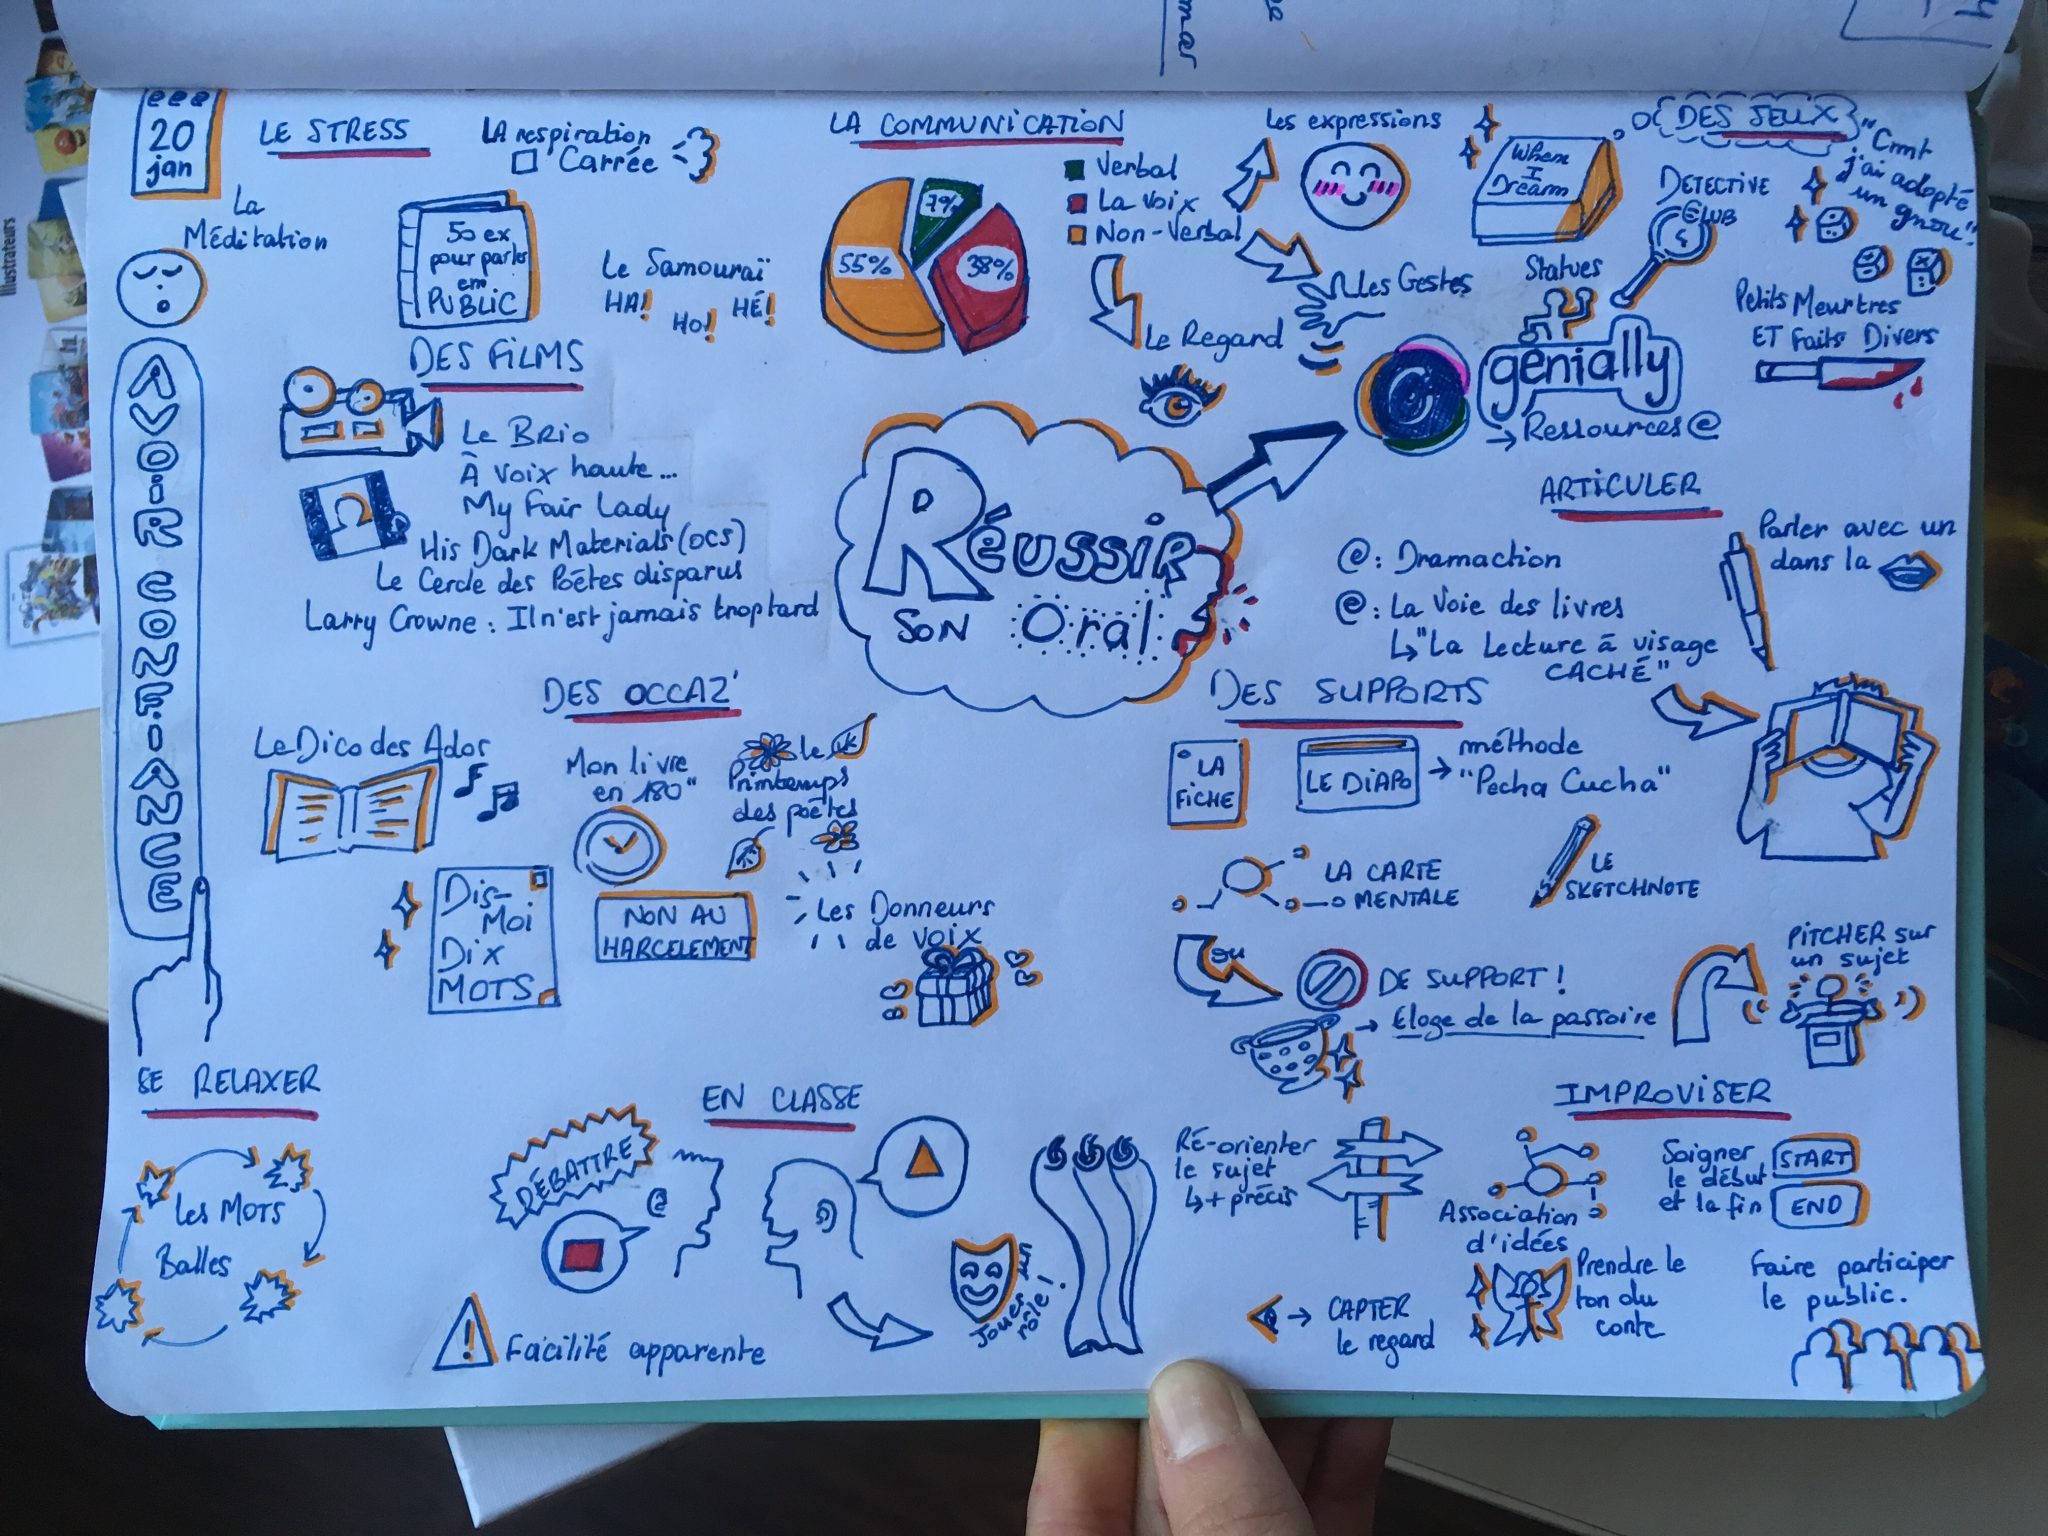 20
jan
LE STRESS
LA respiration
Carrée
La
Méditation
50 ex
pour parler
en
PUBLIC
Le Samouraï
HA!
HO!
HÉ!
AVOIR CONFIANCE
DES FILMS
Le Brio
À voix haute...
My Fair Lady
His Dark Materials (OCS)
Le Cercle des Poëtes disparus
Larry Crowne : Il n'est jamais trop tard
LA COMMUNICATION
7%
55%
38%
Verbal
La Voix
Non-Verbal
Les expressions
Les Gestes
Le Regard
DES JEUX
When
I
Dream
DETECTIVE
CLUB
"Cmt
j'ai adopté
un gnou".
Statues
Petits Meurtres
ET Faits Divers
genially
Ressources @
Réussir
SON Oral
ARTICULER
@ : Dramaction
@ : La Voie des livres
"La Lecture à visage
CACHÉ"
Parler avec un
dans la
DES OCCAZ'
Le Dico des Ados
Mon livre
en 180"
le
Printemps
des poëtes
Dis-
Moi
Dix
MOTS
NON AU
HARCELEMENT
Les Donneurs
de voix
DES SUPPORTS
LA
FICHE
LE DIAPO
méthode
"Pecha Cucha"
LA CARTE
MENTALE
LE
SKETCHNOTE
ou
DE SUPPORT !
Eloge de la passoire
PITCHER sur
un sujet
SE RELAXER
Les MOTS
Balles
EN CLASSE
DÉBATTRE
Jouer un
rôle !
Facilité apparente
IMPROVISER
Ré-orienter
le sujet
+ précis
Association
d'idées
Soigner
le début
et la fin
START
END
CAPTER
le regard
Prendre le
ton du
conte
Faire participer
le public.
Illustrateurs